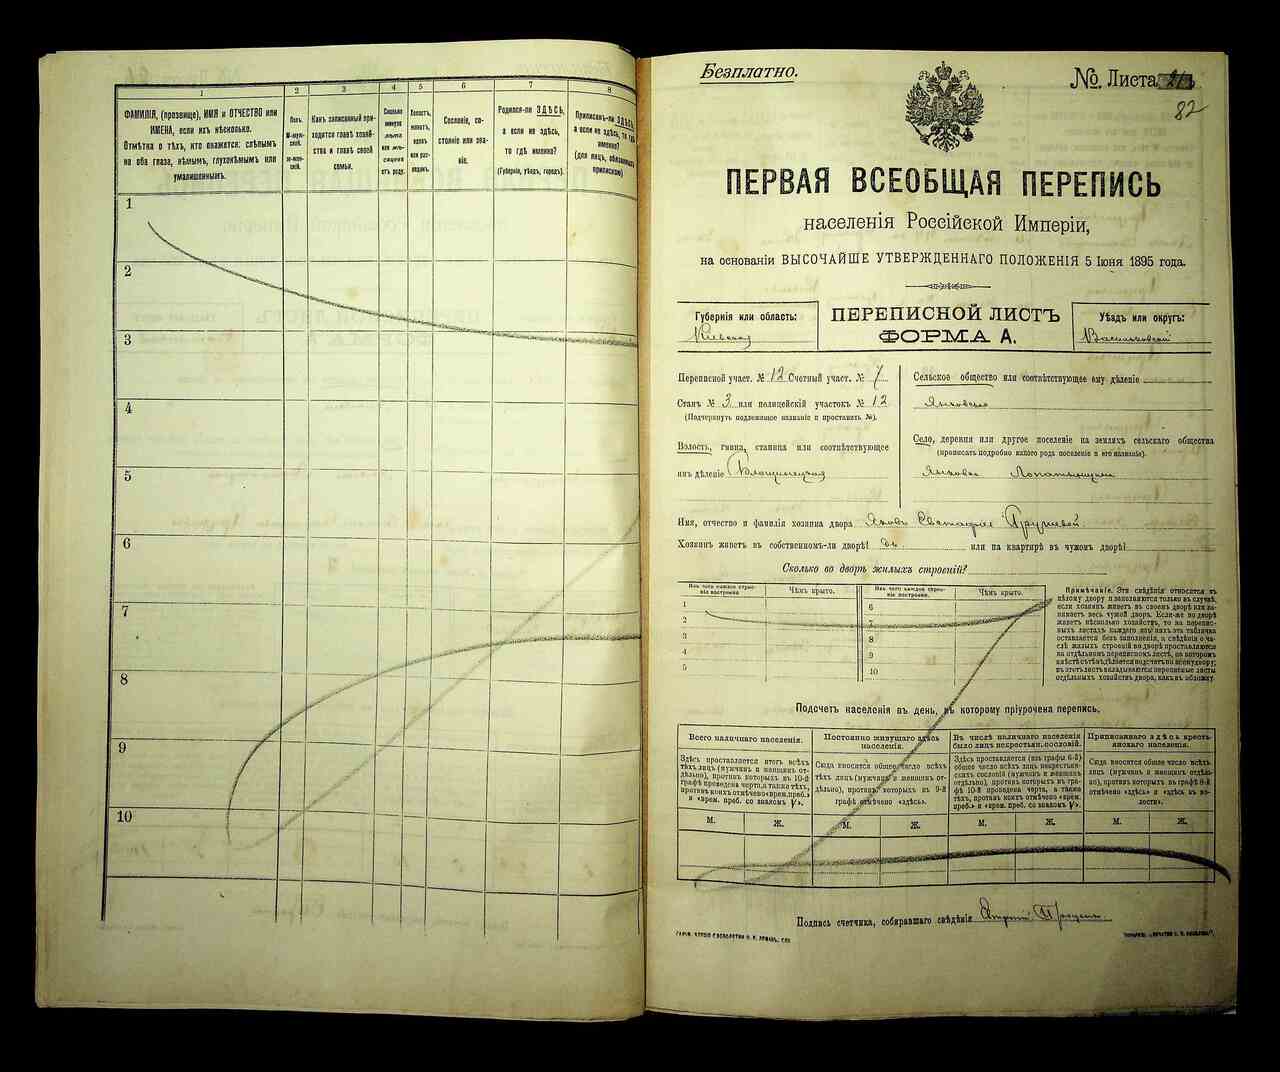 1
2
3
4
5
6
7
8
ФАМИЛІЯ, (прозвище), ИМЯ и ОТЧЕСТВО или
ИМЕНА, если ихъ нѣсколько.
Отмѣтка о тѣхъ, кто окажется: слѣпымъ
на оба глаза, нѣмымъ, глухонѣмымъ или
умалишеннымъ.
Полъ.
М-муж-
ской.
Ж-жен-
скій.
Какъ записанный при-
ходится главѣ хозяй-
ства и главѣ своей
семьи.
Сколько
минуло
лѣтъ
или мѣ-
сяцевъ
отъ роду.
Холостъ,
женатъ,
вдовъ
или раз-
веденъ.
Сословіе, со-
стояніе или зва-
ніе.
Родился-ли ЗДѢСЬ,
а если не здѣсь,
то гдѣ именно?
(Губернія, уѣздъ, городъ).
Приписанъ-ли ЗДѢСЬ,
а если не здѣсь, то гдѣ
именно?
(для лицъ, обязанныхъ
припискою)
1
2
3
4
5
6
7
8
9
10
Безплатно.
№ Листа
82
ПЕРВАЯ ВСЕОБЩАЯ ПЕРЕПИСЬ
населенія Россійской Имперіи,
на основаніи ВЫСОЧАЙШЕ УТВЕРЖДЕННАГО ПОЛОЖЕНІЯ 5 Іюня 1895 года.
Губернія или область:
Кіевская
ПЕРЕПИСНОЙ ЛИСТЪ
ФОРМА А.
Уѣздъ или округъ:
Васильковскій
Переписной участ. № 12 Счетный участ. № 7
Станъ № 3 или полицейскій участокъ № 12
(Подчеркнуть подлежащее названіе и проставить №).
Волость, гмина, станица или соотвѣтствующее
имъ дѣленіе
Сельское общество или соотвѣтствующее ему дѣленіе
Село, деревня или другое поселеніе на земляхъ сельскаго общества
(прописать подробно какого рода поселеніе и его названіе).
Имя, отчество и фамилія хозяина двора Яковъ
Хозяинъ живетъ въ собственномъ-ли дворѣ? да. или на квартирѣ въ чужомъ дворѣ?
Сколько во дворѣ жилыхъ строеній?
Изъ чего каждое строе-
ніе построено
Чѣмъ крыто.
Изъ чего каждое строе-
ніе построено.
Чѣмъ крыто.
1
2
3
4
5
6
7
8
9
10
Примѣчаніе. Эти свѣдѣнія относятся къ
цѣлому двору и заполняются только въ случаѣ,
если хозяинъ живетъ въ своемъ дворѣ или за-
нимаетъ весь чужой дворъ. Если-же во дворѣ
живетъ нѣсколько хозяйствъ, то на перепис-
ныхъ листахъ каждаго изъ нихъ эта табличка
оставляется безъ заполненія, а свѣдѣнія о чи-
слѣ жилыхъ строеній во дворѣ проставляются
на отдѣльномъ переписномъ листѣ, на которомъ
вмѣстѣ съ тѣмъ дѣлается подсчетъ по всему двору;
въ этотъ листъ вкладываются переписные листы
отдѣльныхъ хозяйствъ двора, какъ въ обложку.
Подсчетъ населенія въ день, къ которому пріурочена перепись.
Всего наличнаго населенія.
Здѣсь проставляется итогъ всѣхъ
тѣхъ лицъ (мужчинъ и женщинъ от-
дѣльно), противъ которыхъ въ 10-й
графѣ проведена черта, а также тѣхъ,
противъ коихъ отмѣчено «врем. преб.»
и «врем. преб. со знакомъ V».
Постоянно живущаго здѣсь
населенія.
Сюда вносится общее число всѣхъ
тѣхъ лицъ (мужчинъ и женщинъ от-
дѣльно), противъ которыхъ въ 9-й
графѣ отмѣчено «здѣсь».
Въ числѣ наличнаго населенія
было лицъ некрестьян. сословій.
Здѣсь проставляется (изъ графы 6-й)
общее число всѣхъ лицъ некрестьян-
скихъ сословій (мужчинъ и женщинъ
отдѣльно), противъ которыхъ въ гра-
фѣ 10-й проведена черта, а также
тѣхъ, противъ коихъ отмѣчено «врем.
преб.» и «врем. преб. со знакомъ V».
Приписаннаго здѣсь кресть-
янскаго населенія.
Сюда вносится общее число всѣхъ
лицъ (мужчинъ и женщинъ отдѣль-
но), противъ которыхъ въ графѣ 8-й
отмѣчено «здѣсь» и «здѣсь въ во-
лости».
М.
Ж.
М.
Ж.
М.
Ж.
М.
Ж.
Подпись счетчика, собиравшаго свѣдѣнія